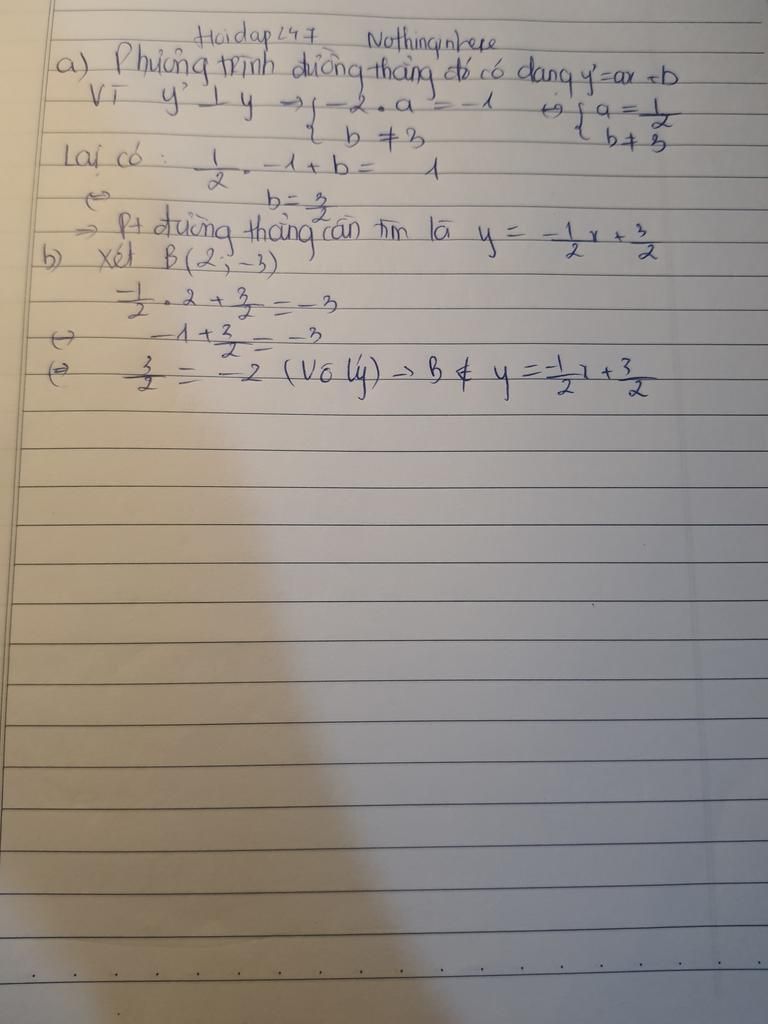 Hoidap247 Nothinginhere
a) Phương trình đường thẳng đó có dạng y'=ax+b
Vì y' ⊥ y → { -2 . a = -1 ⇔ { a = 1/2
b ≠ 3 b ≠ 3
Lại có : 1/2 . -1 + b = 1
⇔ b = 3/2
⇒ Pt đường thẳng cần tìm là y = -1/2 x + 3/2
b) Xét B(2; -3)
-1/2 . 2 + 3/2 = -3
⇔ -1 + 3/2 = -3
⇔ 3/2 = -2 (Vô lý) → B ∉ y = -1/2 x + 3/2